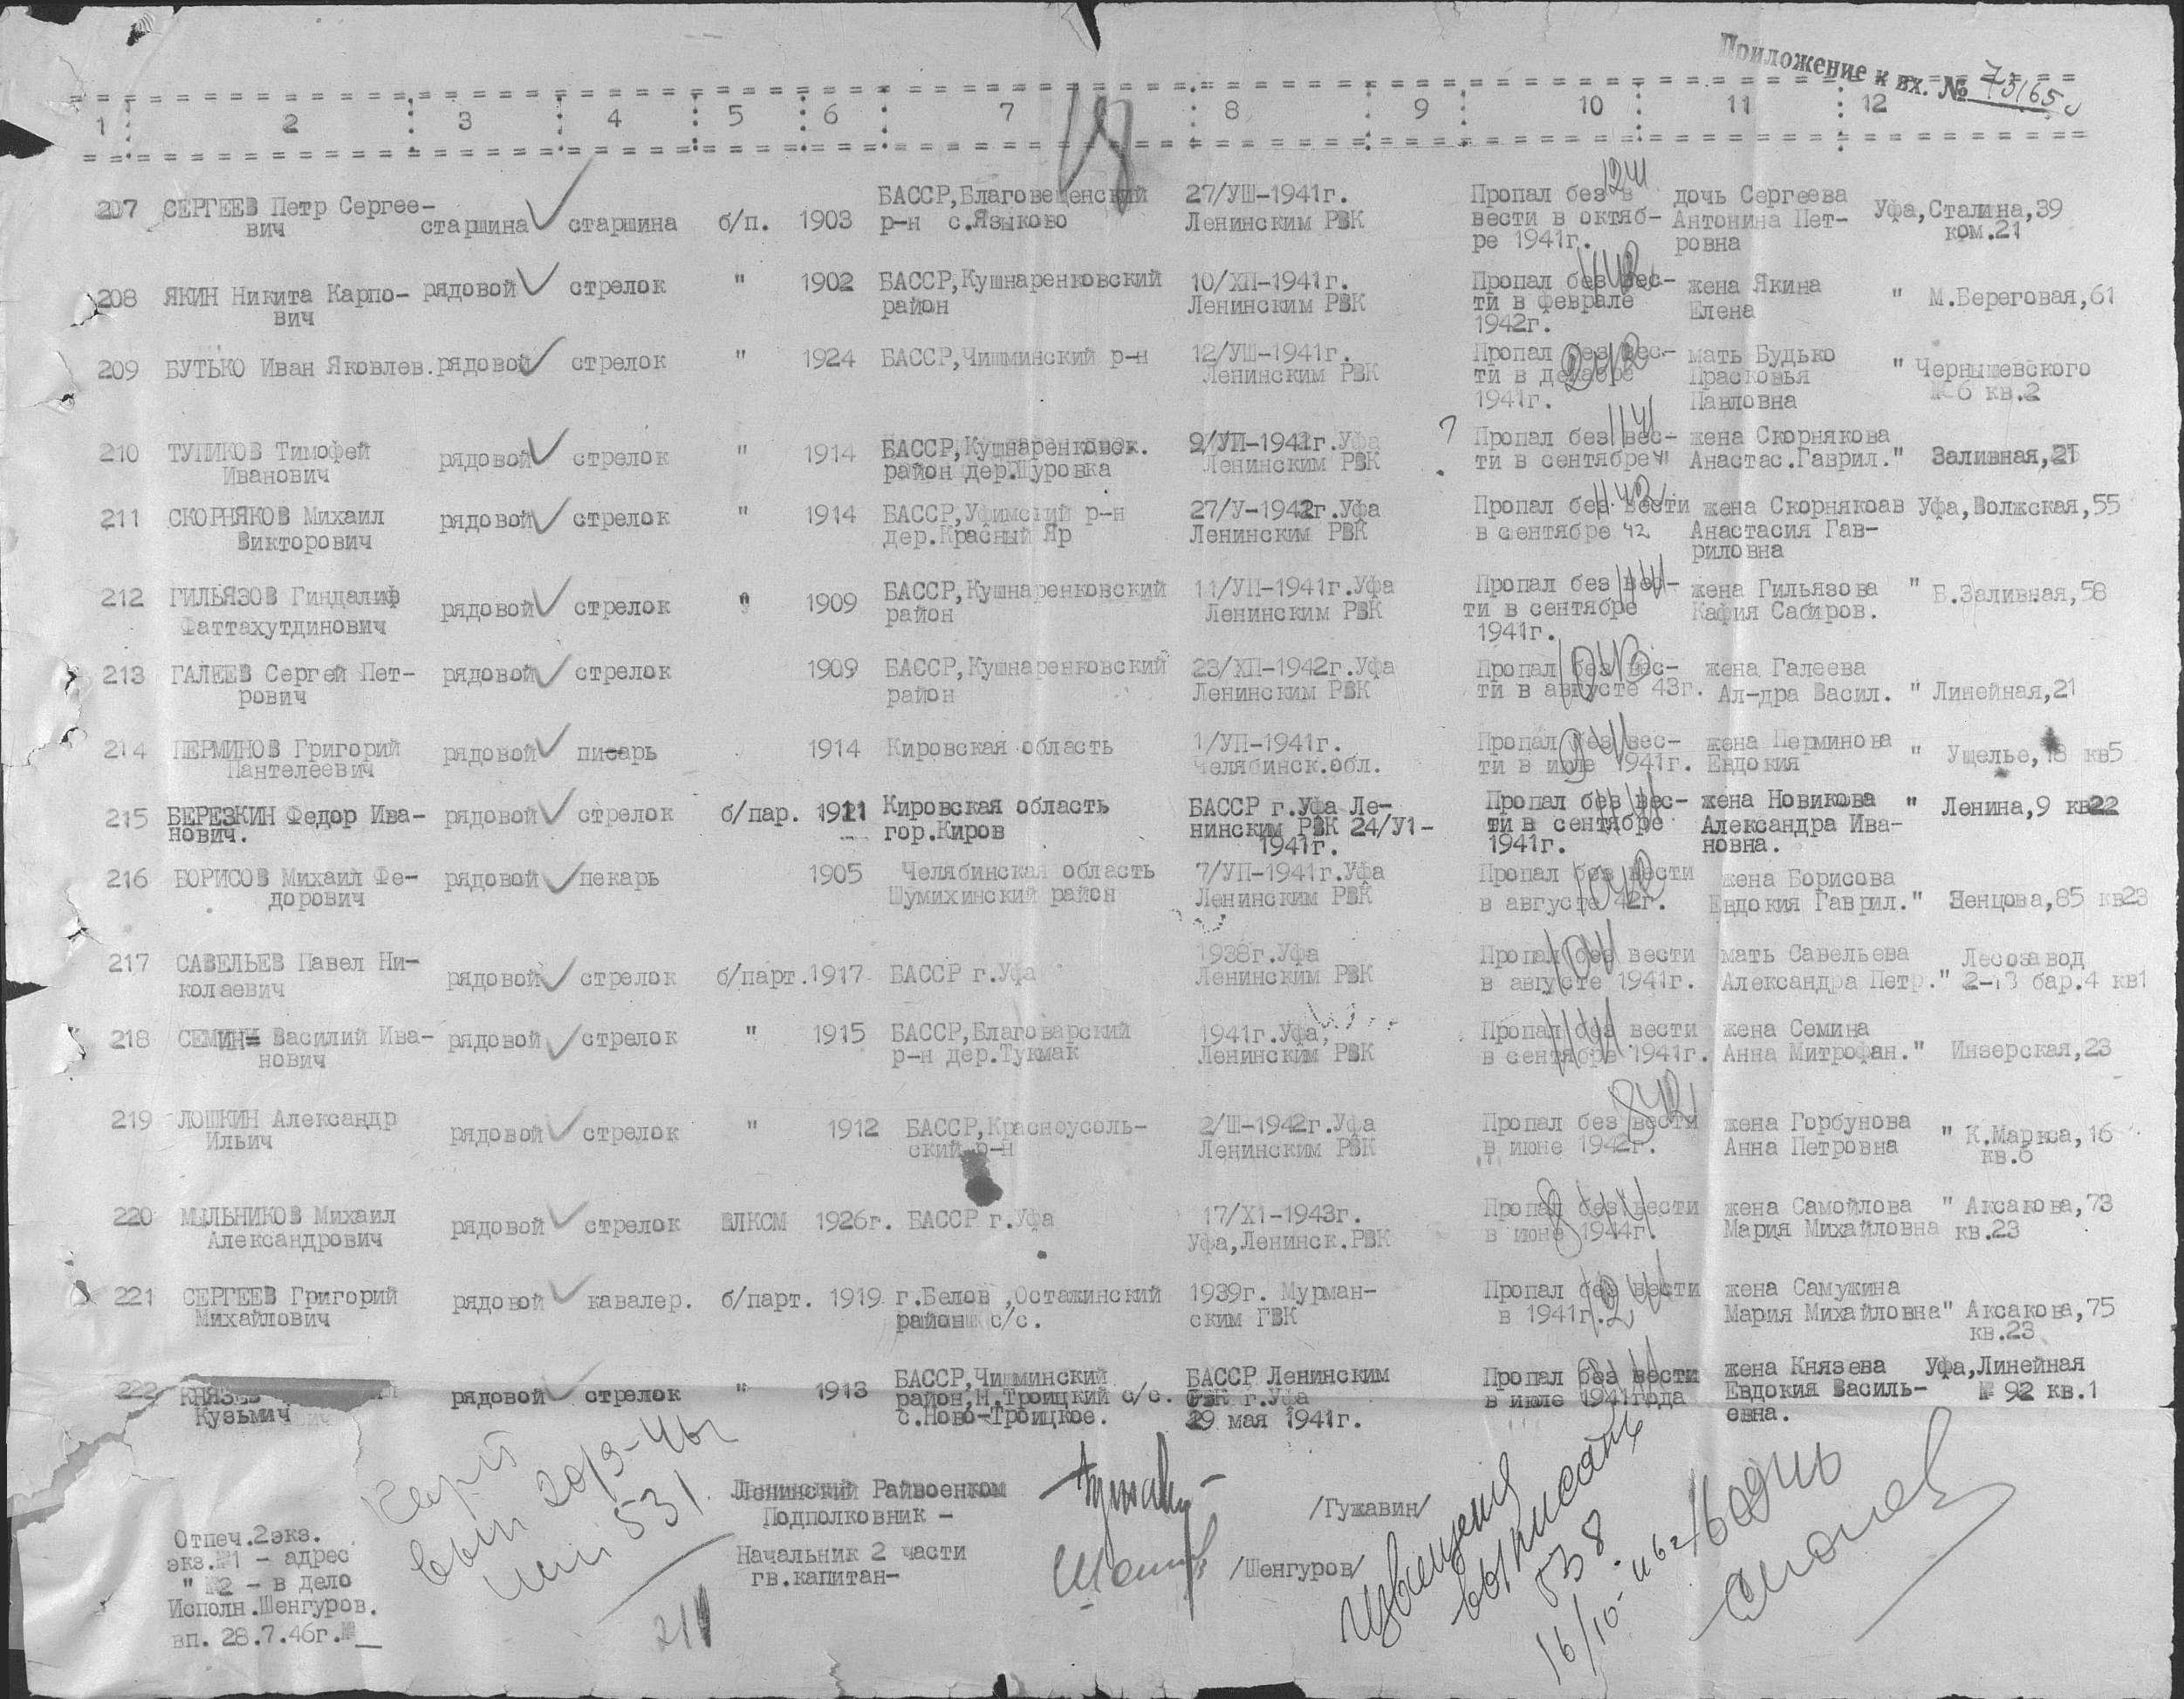 Приложение к вх. № 73165
1 2 3 4 5 6 7 8 9 10 11 12
207 СЕРГЕЕВ Петр Сергее-вич старшина старшина б/п. 1903 БАССР,Благовещенский р-н с.Языково 27/УШ-1941г. Ленинским РВК Пропал без в вести в октяб-ре 1941г. дочь Сергеева Антонина Пет-ровна Уфа,Сталина,39 ком.21
208 ЯКИН Никита Карпо-вич рядовой стрелок " 1902 БАССР,Кушнаренковский район 10/ХП-1941г. Ленинским РВК Пропал без вес-ти в феврале 1942г. жена Якина Елена " М.Береговая,61
209 БУТЬКО Иван Яковлев. рядовой стрелок " 1924 БАССР,Чишминский р-н 12/УШ-1941г. Ленинским РВК Пропал без вес-ти в декабре 1941г. мать Будько Прасковья Павловна " Чернышевского № 6 кв.2
210 ТУПИКОВ Тимофей Иванович рядовой стрелок " 1914 БАССР,Кушнаренковск. район дер.Шуровка 9/УП-1941г.Уфа Ленинским РВК ? Пропал без вес-ти в сентябре 41 жена Скорнякова Анастас.Гаврил." Заливная,21
211 СКОРНЯКОВ Михаил Викторович рядовой стрелок " 1914 БАССР,Уфимский р-н дер.Красный Яр 27/У-1942г.Уфа Ленинским РВК Пропал без вести в сентябре 42 жена Скорнякоав Анастасия Гав-риловна Уфа,Волжская,55
212 ГИЛЬЯЗОВ Гиндалиф Фаттахутдинович рядовой стрелок " 1909 БАССР,Кушнаренковский район 11/УП-1941г.Уфа Ленинским РВК Пропал без вес-ти в сентябре 1941г. жена Гильязова Кафия Сабиров. " Б.Заливная,58
213 ГАЛЕЕВ Сергей Пет-рович рядовой стрелок 1909 БАССР,Кушнаренковский район 23/ХП-1942г.Уфа Ленинским РВК Пропал без вес-ти в августе 43г. жена Галеева Ал-дра Васил. " Линейная,21
214 ПЕРМИНОВ Григорий Пантелеевич рядовой писарь 1914 Кировская область 1/УП-1941г. Челябинск.обл. Пропал без вес-ти в июле 1941г. жена Перминова Евдокия " Ущелье,18 кв5
215 БЕРЕЗКИН Федор Ива-нович. рядовой стрелок б/пар. 1911 Кировская область гор.Киров БАССР г.Уфа Ле-нинским РВК 24/У1-1941г. Пропал без вес-ти в сентябре 1941г. жена Новикова Александра Ива-новна. " Ленина,9 кв22
216 БОРИСОВ Михаил Фе-дорович рядовой пекарь 1905 Челябинская область Шумихинский район 7/УП-1941г.Уфа Ленинским РВК Пропал без вести в августе 42г. жена Борисова Евдокия Гаврил." Зенцова,85 кв23
217 САВЕЛЬЕВ Павел Ни-колаевич рядовой стрелок б/парт. 1917 БАССР г.Уфа 1938г.Уфа Ленинским РВК Пропал без вести в августе 1941г. мать Савельева Александра Петр." Лесозавод 2-13 бар.4 кв1
218 СЕМИН Василий Ива-нович рядовой стрелок " 1915 БАССР,Благоварский р-н дер.Тукмак 1941г.Уфа, Ленинским РВК Пропал без вести в сентябре 1941г. жена Семина Анна Митрофан." Инзерская,23
219 ЛОШКИН Александр Ильич рядовой стрелок " 1912 БАССР,Красноусоль-ский р-н 2/Ш-1942г.Уфа Ленинским РВК Пропал без вести в июне 1942г. жена Горбунова Анна Петровна " К.Маркса,16 кв.6
220 МЫЛЬНИКОВ Михаил Александрович рядовой стрелок ВЛКСМ 1926г. БАССР г.Уфа 17/Х1-1943г. Уфа,Ленинск.РВК Пропал без вести в июне 1944г. жена Самойлова Мария Михайловна " Аксакова,73 кв.23
221 СЕРГЕЕВ Григорий Михайлович рядовой кавалер. б/парт. 1919 г.Белов ,Остажинский район с/с. 1939г. Мурман-ским ГВК Пропал без вести в 1941г. жена Самужина Мария Михайловна" Аксакова,75 кв.23
222 КНЯЗЕВ Кузьмич рядовой стрелок " 1913 БАССР,Чишминский район,Н.Троицкий с/с. с.Ново-Троицкое. БАССР Ленинским РВК г.Уфа 29 мая 1941г. Пропал без вести в июле 1941года жена Князева Евдокия Василь-евна. Уфа,Линейная № 92 кв.1
Ленинский Райвоенком
Подполковник - /Гужавин/
Начальник 2 части
гв.капитан- /Шенгуров/
Отпеч.2экз.
экз.№1 - адрес
" №2 - в дело
Исполн.Шенгуров.
вп. 28.7.46г.№
20/9-46г
531
211
Извещения
выписаны
538
16/10-46г